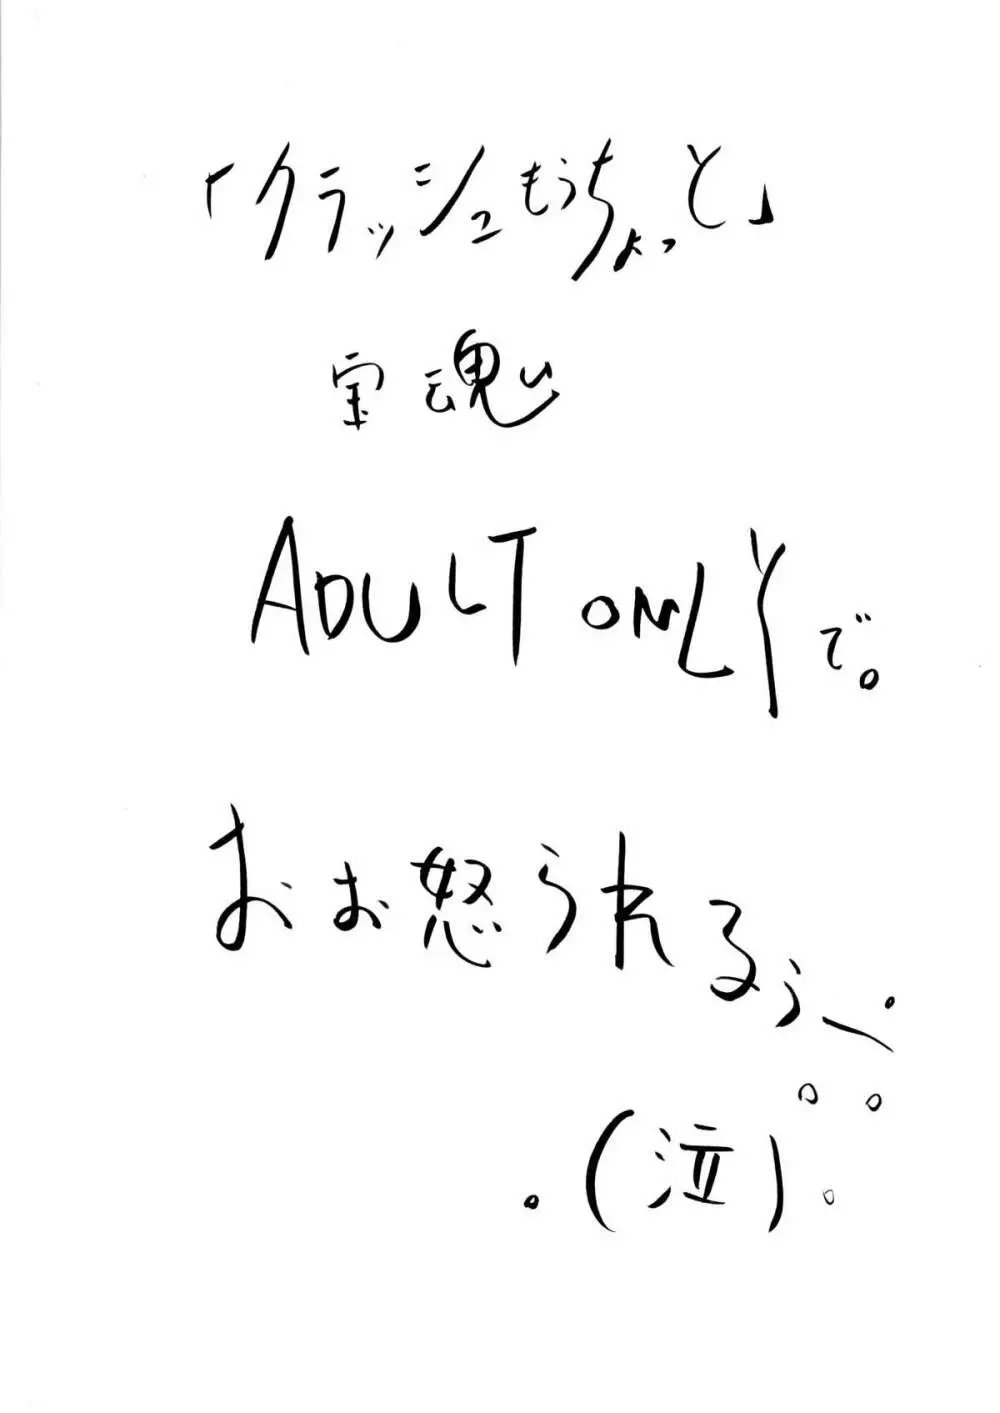 「クラッシュもうちょっと」
宝魂
ADULT ONLYで。
おお怒られるぅ〜。
(泣)。